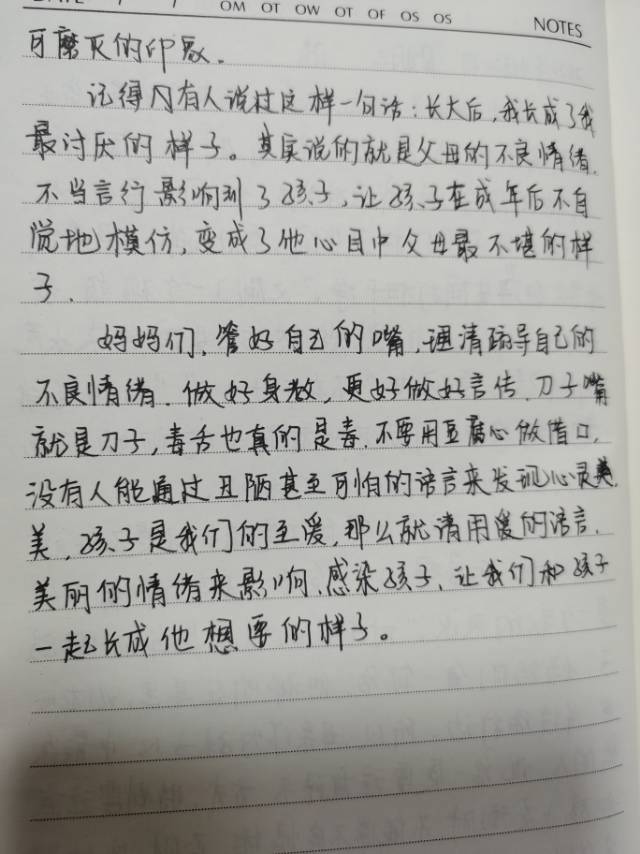 DATE / /
OM OT OW OT OF OS OS
NOTES
可磨灭的印象.
记得有人说过这样一句话:长大后,我长成了我
最讨厌的样子。其实说的就是父母的不良情绪.
不当言行影响到了孩子,让孩子在成年后不自
觉地模仿,变成了他心目中父母最不堪的样
子.
妈妈们,管好自己的嘴,理清疏导自己的
不良情绪.做好身教,更好做好言传.刀子嘴
就是刀子,毒舌也真的是毒.不要用豆腐心做借口,
没有人能通过丑陋甚至可怕的语言来发现心灵美
美,孩子是我们的至爱,那么就请用爱的语言.
美丽的情绪来影响.感染孩子,让我们和孩子
一起长成他想要的样子。